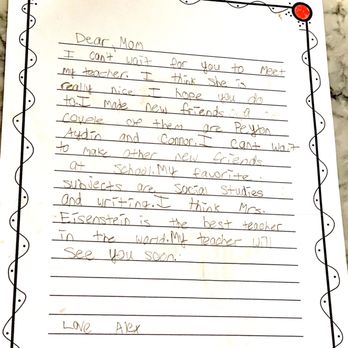 Dear, Mom
I can't wait for you to meet
my teacher. I think she is
really nice I hope you do
to. I made new friends a
couple of them are Peyton
Aydin and Connor. I cant wait
to make other new friends
at school. My favorite
subjects are social studies
and writing. I think Mrs.
Eisenstein is the best teacher
in the world. My teacher will
see you soon.
Love Alex